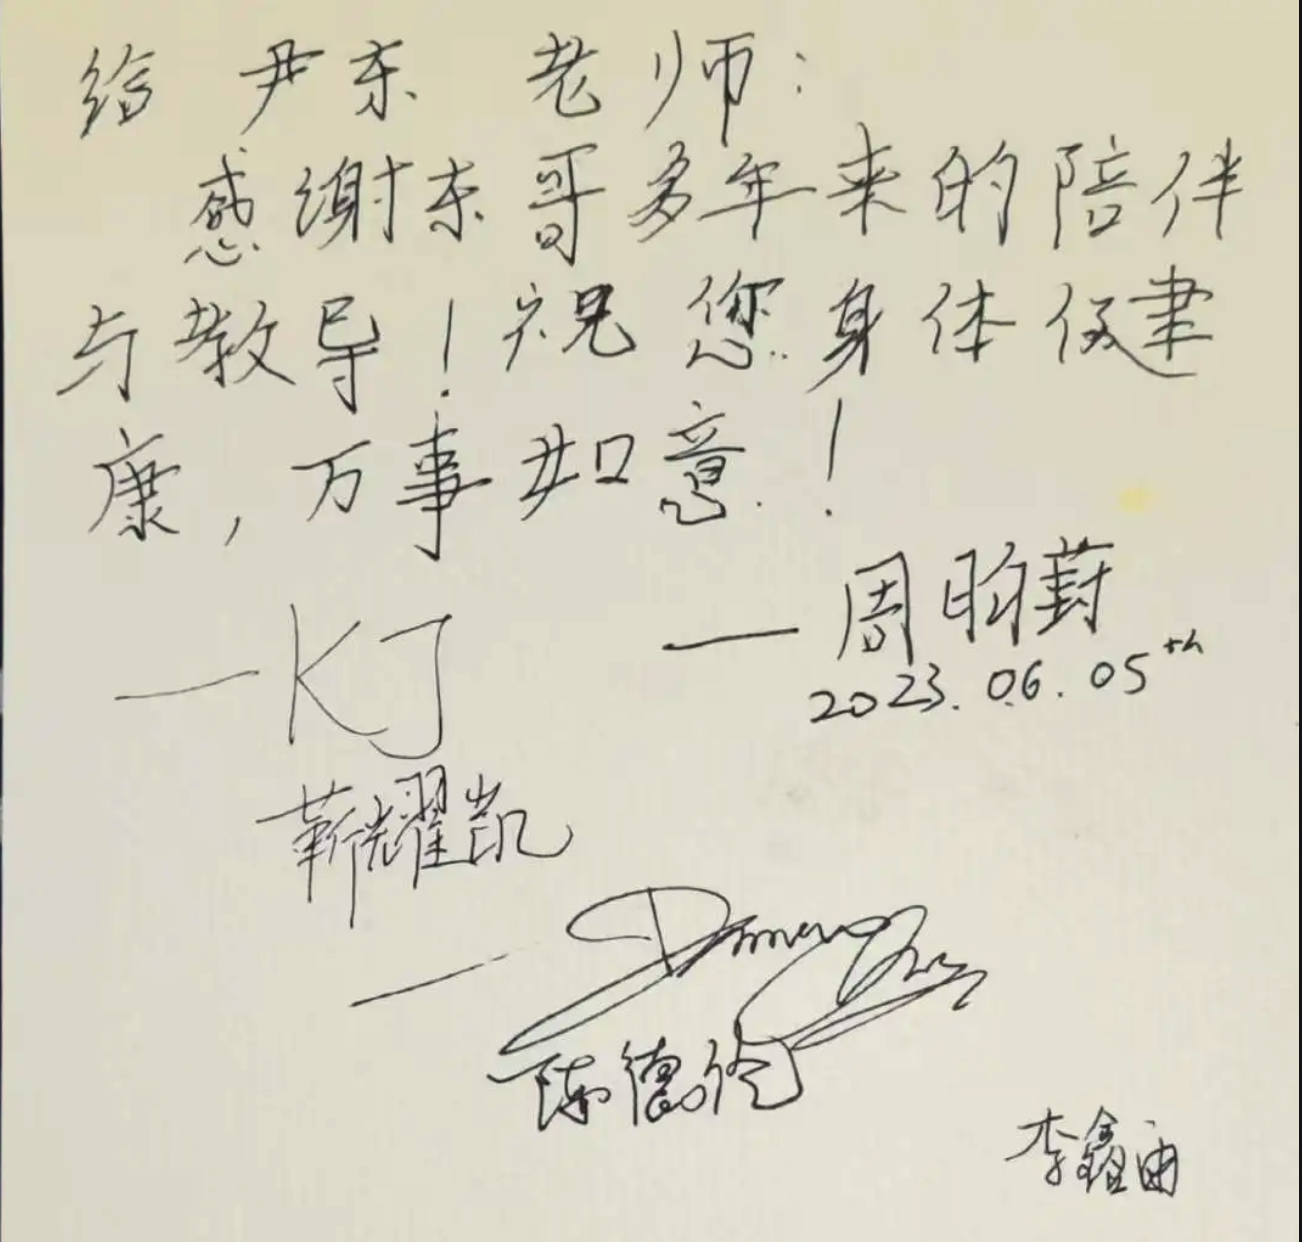 给 尹东 老师:
感谢东哥多年来的陪伴
与教导!祝您身体健
康,万事如意!
—周昀葑
2023.06.05th
—KJ
靳耀凯
陈德伦
李鑫甬